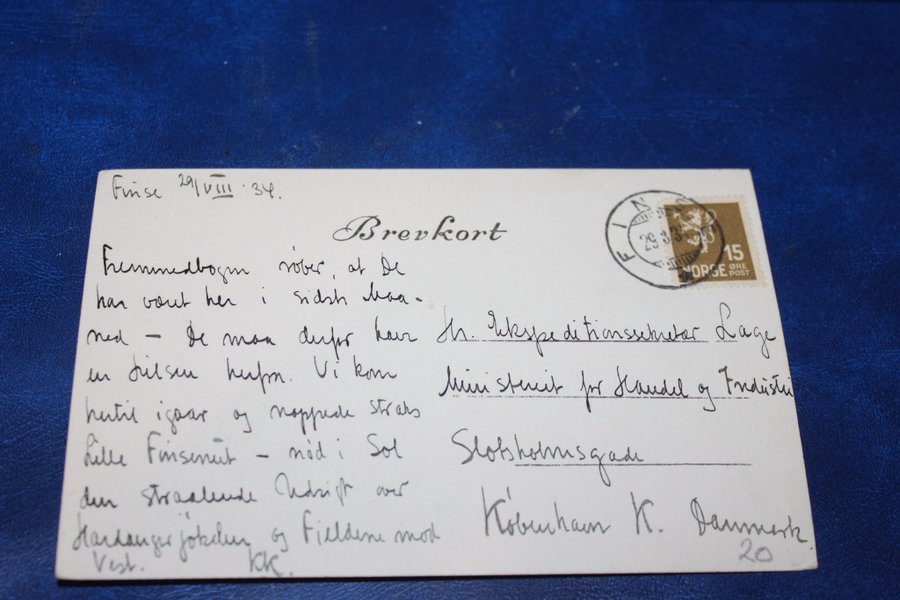 Finse 29/VIII 34.
Brevkort
FINSE
29 8 3
NORGE 15 ØRE POST
Fremmedbogen røber, at De
har været her i sidste Maa-
ned – De maa derfor have
en Hilsen herfra. Vi kom
hertil igaar og nappede straks
Lille Finsenut – nød i Sol
den straalende Udsigt over
Hardangerjøkelen og Fjeldene mod
Vest. KK.
Hr. Ekspeditionssekretær Lage
Ministeriet for Handel og Industri
Slotsholmsgade
København K. Danmark
20